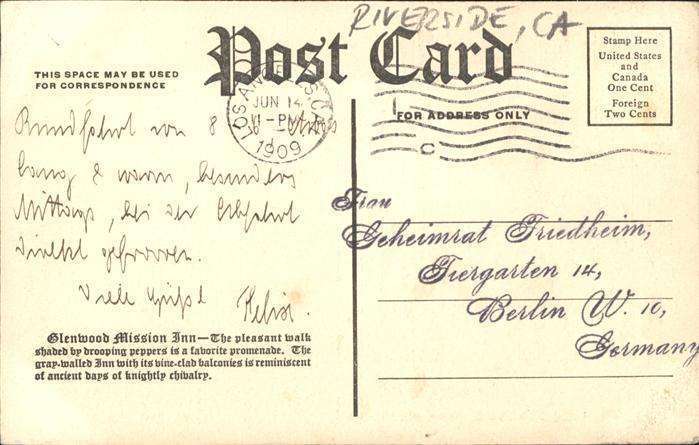 RIVERSIDE, CA
Post Card
THIS SPACE MAY BE USED
FOR CORRESPONDENCE
LOS ANGELES, CAL.
JUN 14
11 - PM
1909
Stamp Here
United States
and
Canada
One Cent
Foreign
Two Cents
FOR ADDRESS ONLY
C
Rundfahrt von 8
lang & warm, besonders
Mittags, bei der Abfahrt
direkt gefroren.
Viele Grüße
Frau
Geheimrat Friedheim,
Tiergarten 14,
Berlin W. 10,
Germany
Glenwood Mission Inn—The pleasant walk
shaded by drooping peppers is a favorite promenade. The
gray-walled Inn with its vine-clad balconies is reminiscent
of ancient days of knightly chivalry.